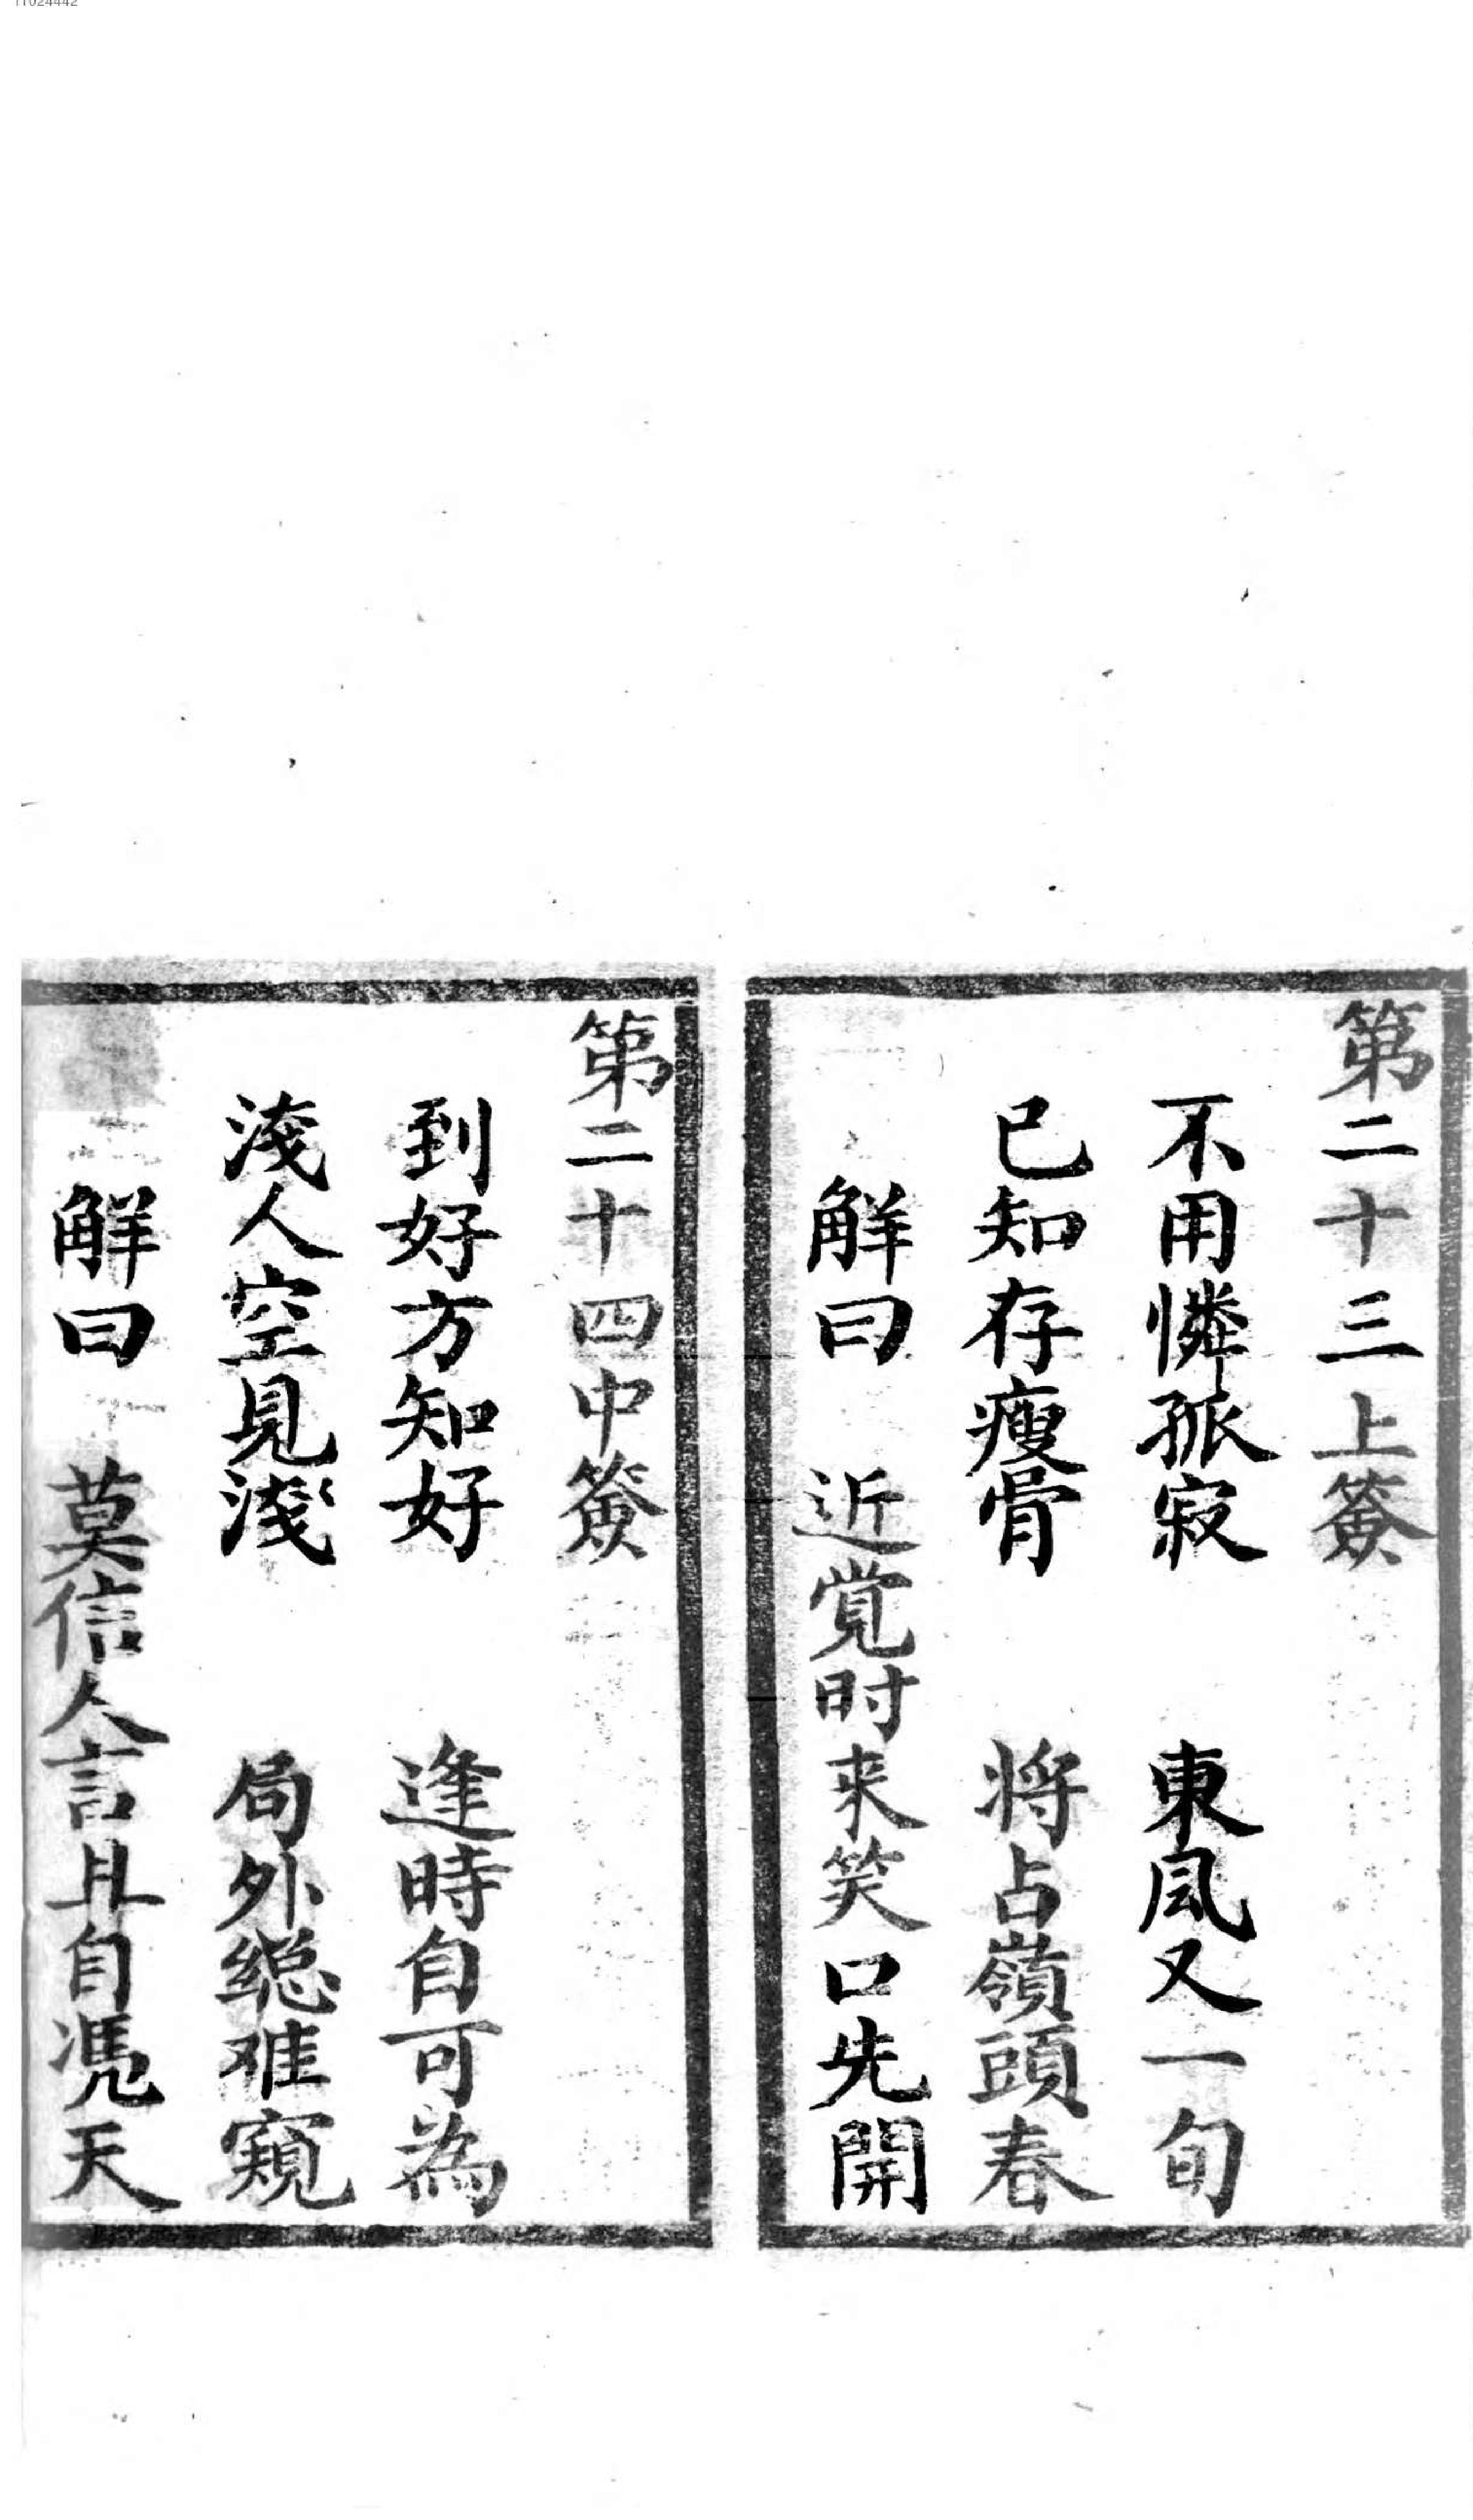 第二十三上簽
不用憐孤寂　東風又一旬
已知存瘦骨　将占嶺頭春
解曰　近覚时来笑口先開
第二十四中簽
到好方知好　逢時自可為
淺人空見淺　局外縂难窺
解曰　莫信人言且自凴天